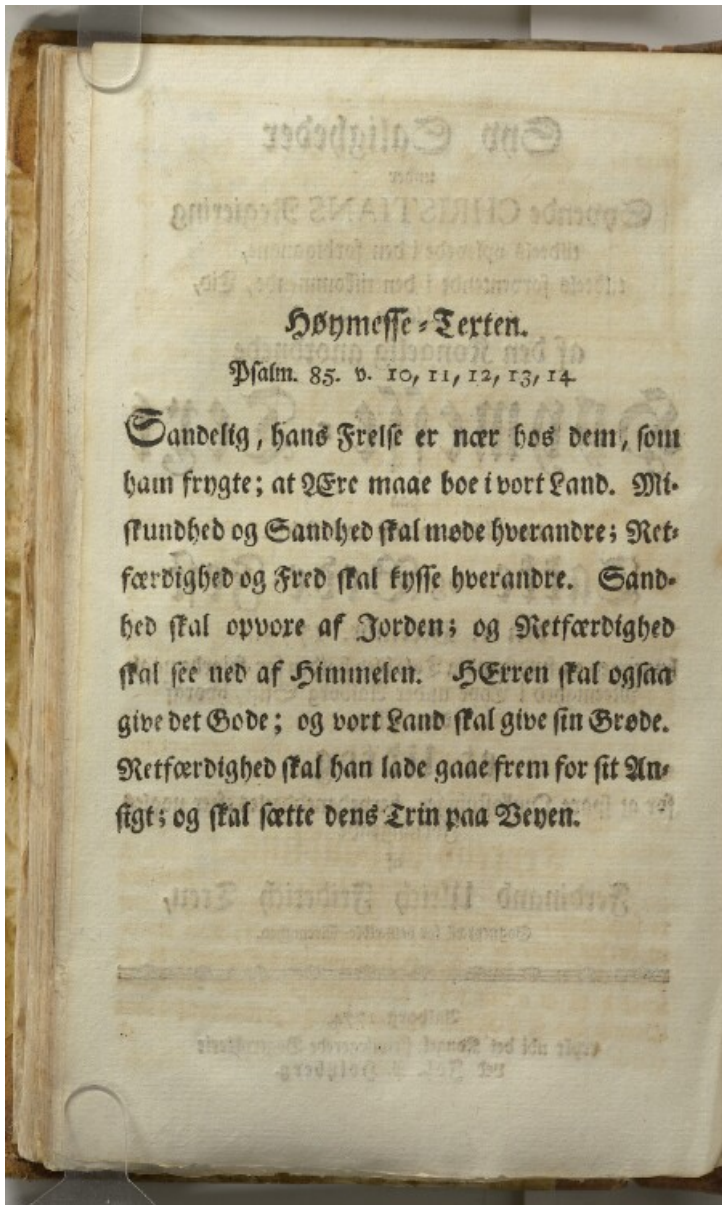 Høymesse-Texten.
Psalm. 85. v. 10, 11, 12, 13, 14
Sandelig, hans Frelse er nær hos dem, som
ham frygte; at Ære maae boe i vort Land. Mi-
skundhed og Sandhed skal møde hverandre; Ret-
færdighed og Fred skal kysse hverandre. Sand-
hed skal opvoxe af Jorden; og Retfærdighed
skal see ned af Himmelen. HErren skal ogsaa
give det Gode; og vort Land skal give sin Grøde.
Retfærdighed skal han lade gaae frem for sit An-
sigt; og skal sætte dens Trin paa Veyen.